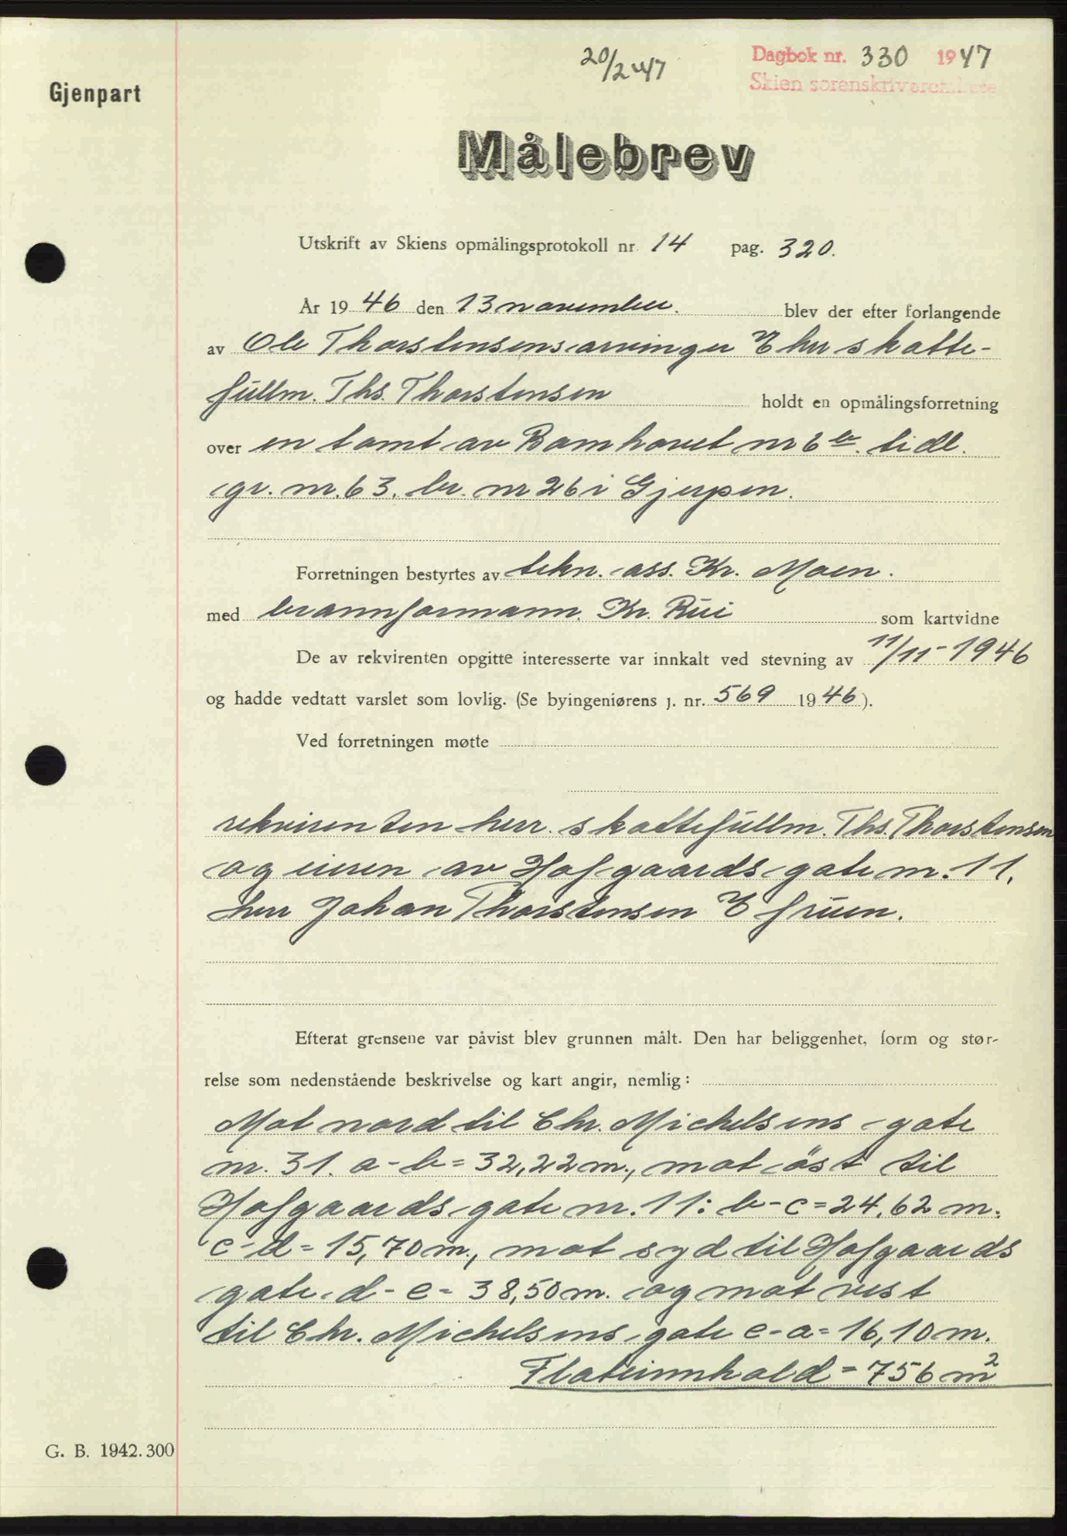 20/2-47
Dagbok nr. 330 1947
Skien sorenskriverembete
Gjenpart
Målebrev
Utskrift av Skiens opmålingsprotokoll nr. 14 pag. 320.
År 1946 den 13 november. blev der efter forlangende
av Ole Thorstensens arvinger v/ herr skatte-
fullm. Ths. Thorstensen holdt en opmålingsforretning
over en tomt av Bamhovet nr 6 tidl.
gr. nr. 63, br. nr 26 i Gjerpen.
Forretningen bestyrtes av tekn. ass. Kr. Moen.
med brannformann. Kr. Rui som kartvidne
De av rekvirenten opgitte interesserte var innkalt ved stevning av 11/11-1946
og hadde vedtatt varslet som lovlig. (Se byingeniørens j. nr. 569 1946).
Ved forretningen møtte
rekvirenten herr. skattefullm. Ths. Thorstensen
og eieren av Hofgaards gate nr. 11.
herr Johan Thorstensen & fruen.
Efterat grensene var påvist blev grunnen målt. Den har beliggenhet, form og stør-
relse som nedenstående beskrivelse og kart angir, nemlig:
Mot nord til Chr. Michelsens gate
nr. 31. a-b=32,22m., mot öst til
Hofgaards gate nr. 11: b-c=24,62 m.
c-d=15,70m., mot syd til Hofgaards
gate. d-e=38,50m. og mot vest
til Chr. Michelsens gate e-a=16,10m.
Flateinnhold=756 m²
G. B. 1942. 300